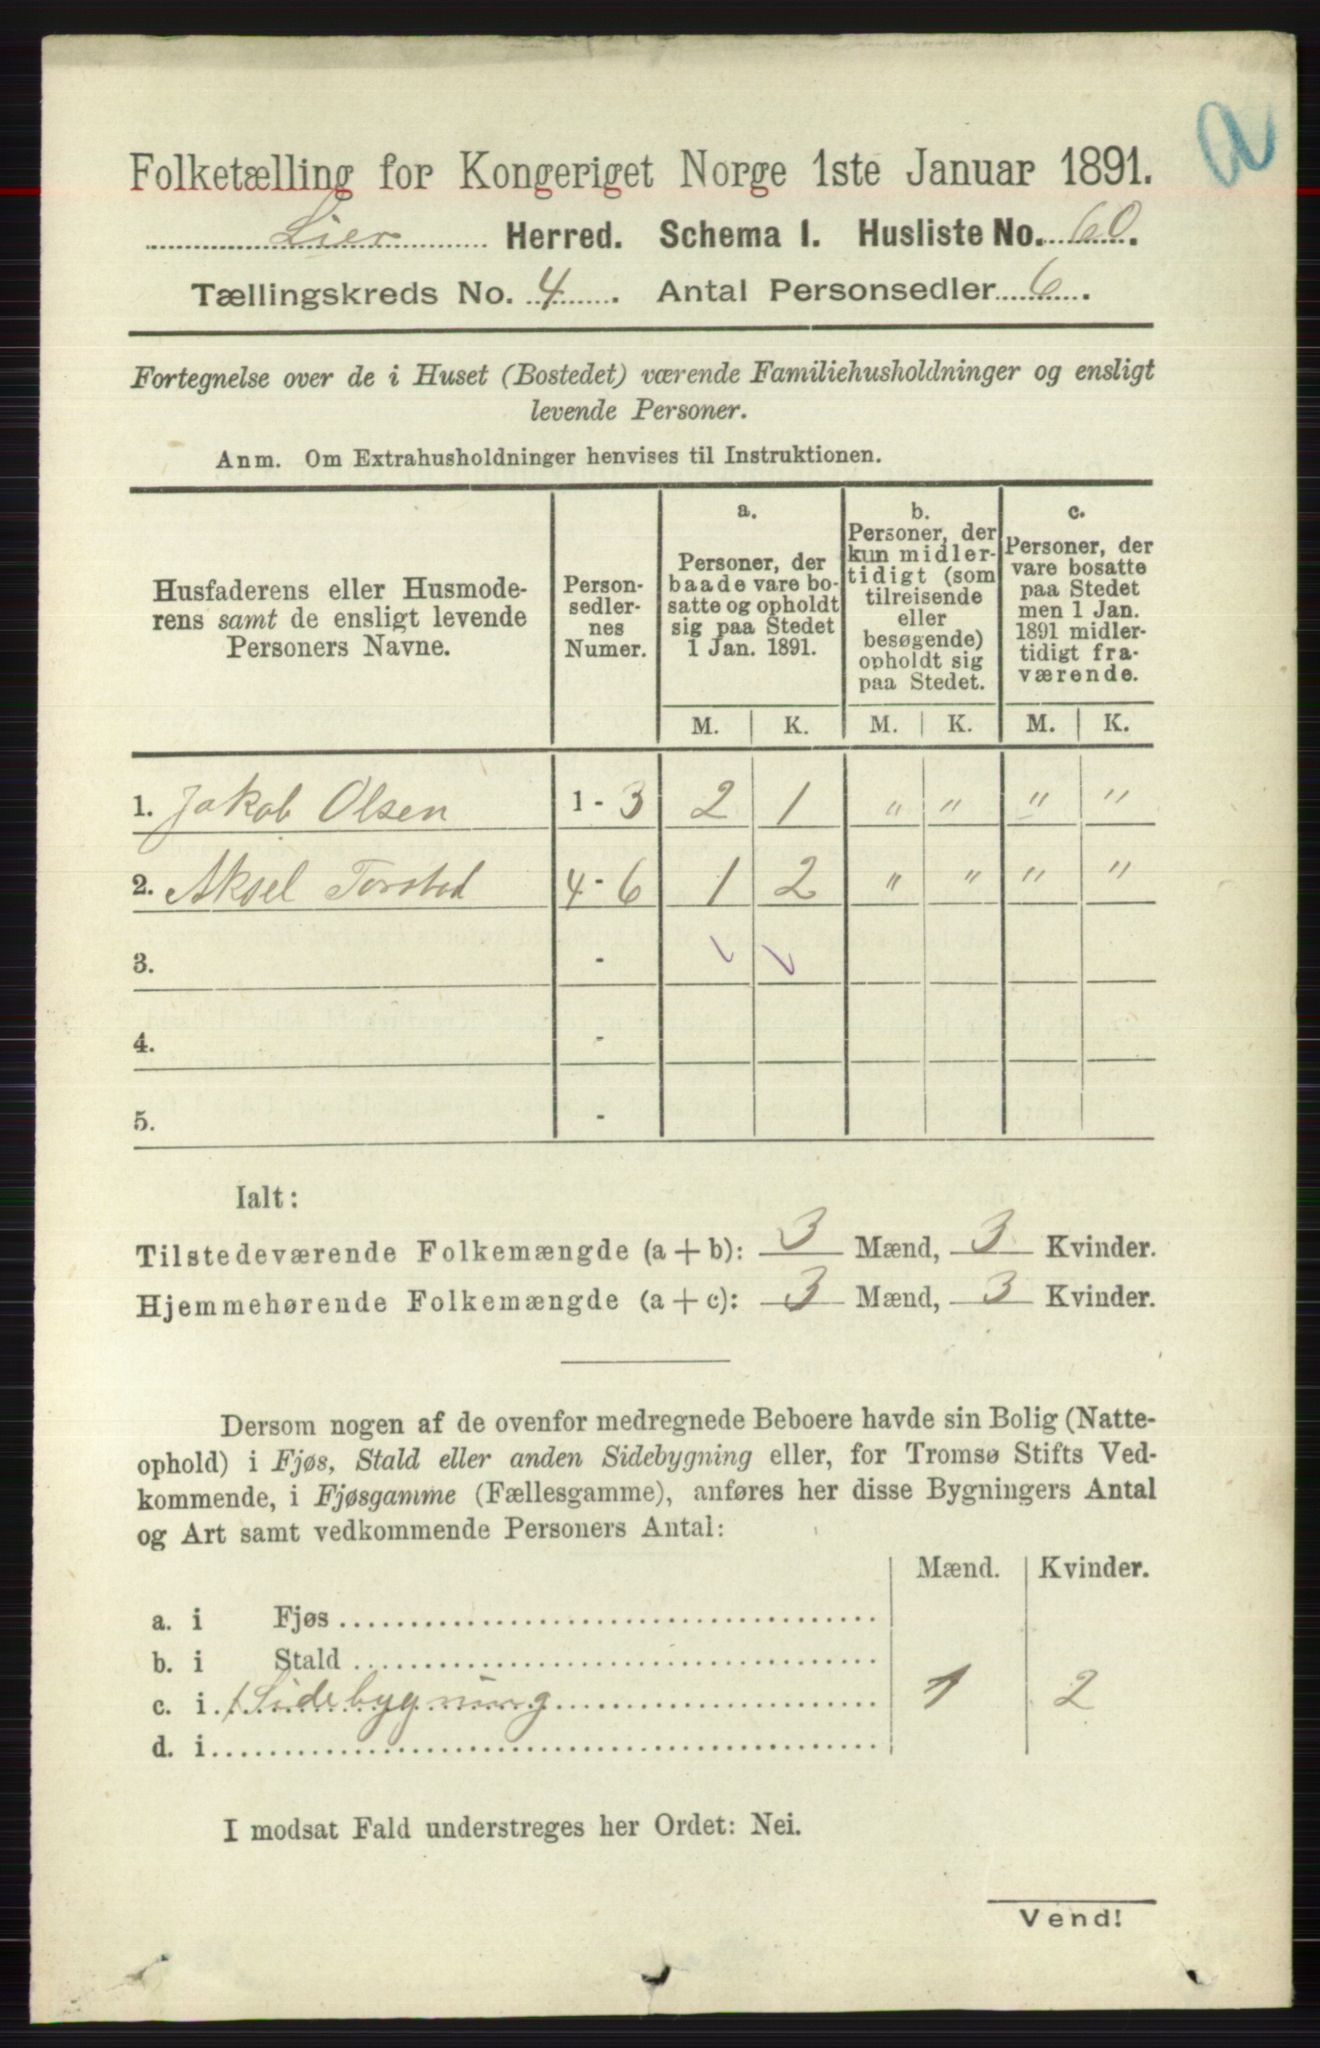 a
Folketælling for Kongeriget Norge 1ste Januar 1891.
Lier Herred. Schema I. Husliste No. 60.
Tællingskreds No. 4. Antal Personsedler 6.
Fortegnelse over de i Huset (Bostedet) værende Familiehusholdninger og ensligt
levende Personer.
Anm. Om Extrahusholdninger henvises til Instruktionen.
Husfaderens eller Husmode-
rens samt de ensligt levende
Personers Navne.
Person-
sedler-
nes
Numer.
a.
Personer, der
baade vare bo-
satte og opholdt
sig paa Stedet
1 Jan. 1891.
b.
Personer, der
kun midler-
tidigt (som
tilreisende
eller
besøgende)
opholdt sig
paa Stedet.
c.
Personer, der
vare bosatte
paa Stedet
men 1 Jan.
1891 midler-
tidigt fra-
værende.
M. K. M. K. M. K.
1. Jakob Olsen 1 - 3 2 1 " " " "
2. Aksel Torstad 4 - 6 1 2 " " " "
3. -
4. -
5. -
Ialt:
Tilstedeværende Folkemængde (a + b): 3 Mænd, 3 Kvinder.
Hjemmehørende Folkemængde (a + c): 3 Mænd, 3 Kvinder.
Dersom nogen af de ovenfor medregnede Beboere havde sin Bolig (Natte-
ophold) i Fjøs, Stald eller anden Sidebygning eller, for Tromsø Stifts Ved-
kommende, i Fjøsgamme (Fællesgamme), anføres her disse Bygningers Antal
og Art samt vedkommende Personers Antal:
Mænd. Kvinder.
a. i Fjøs
b. i Stald
c. i 1 Sidebygning 1 2
d. i
I modsat Fald understreges her Ordet: Nei.
Vend!